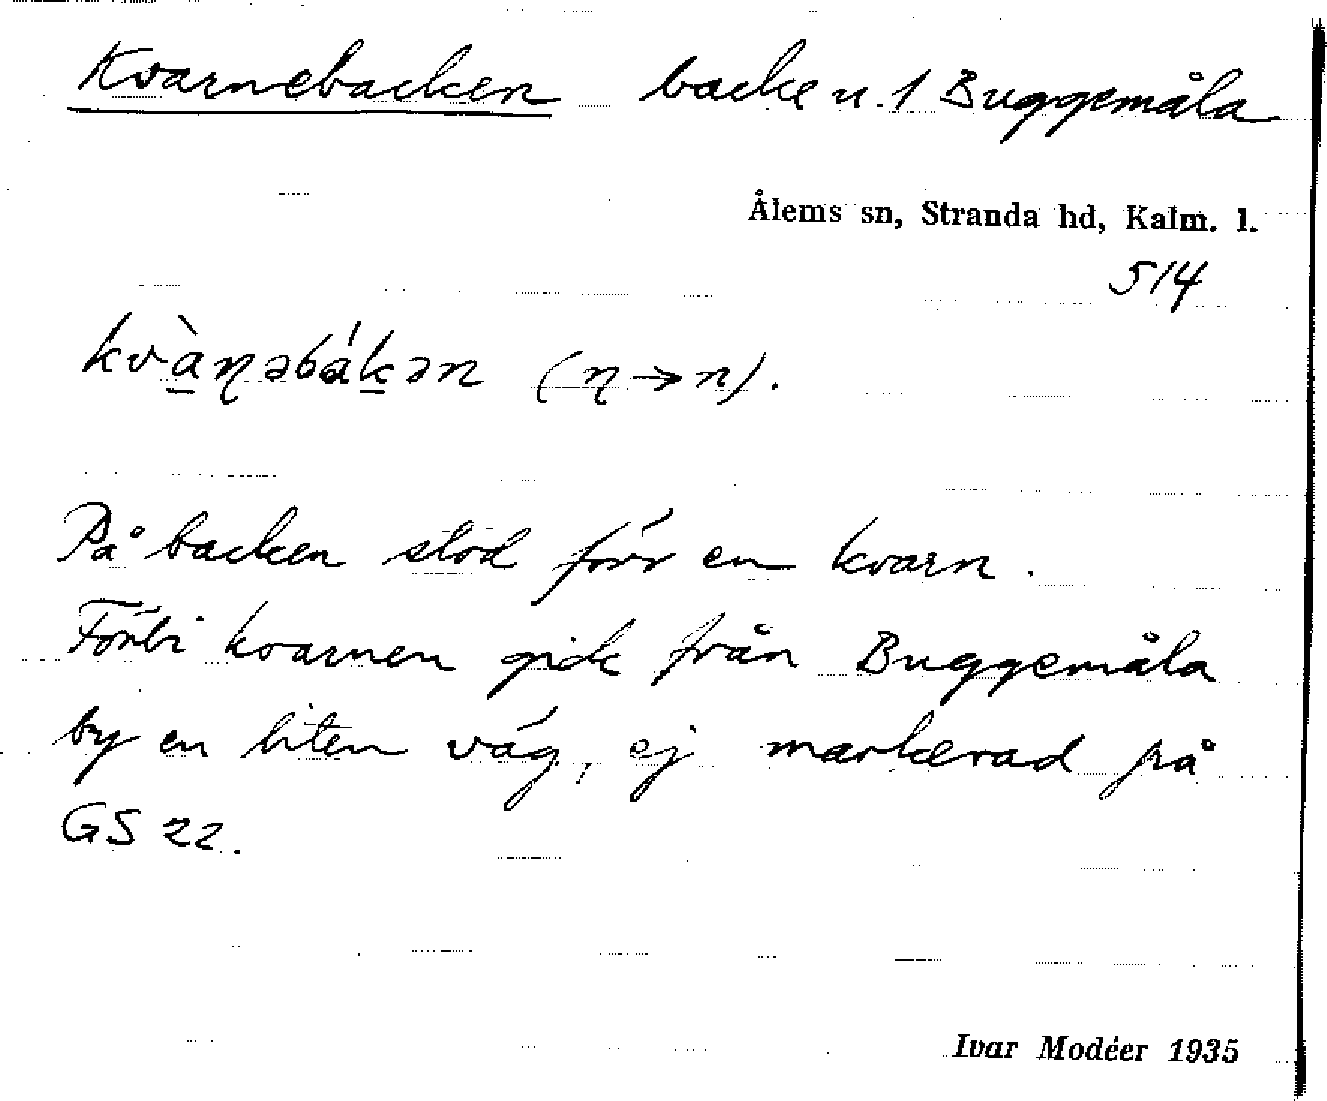 Kvarnebacken backe u. 1 Buggemåla
Ålems sn, Stranda hd, Kalm. l.
514
kvàṉəbáḵən (ɳ→n).
På backen stod förr en kvarn.
Förbi kvarnen gick från Buggemåla
by en liten väg, ej markerad på
GS 22.
Ivar Modéer 1935